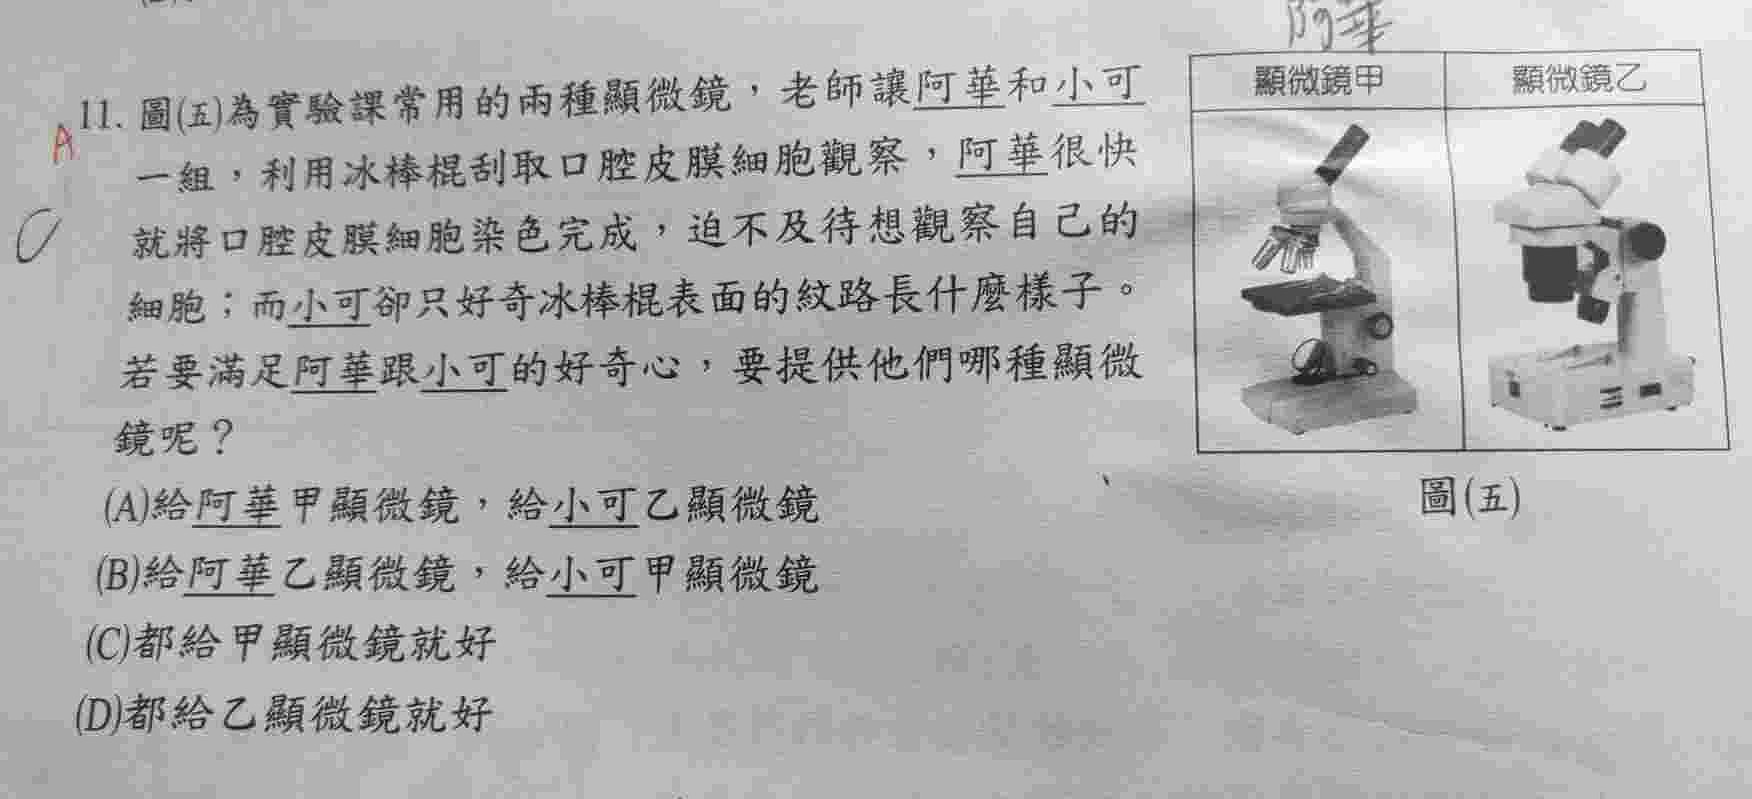 阿華
顯微鏡甲 顯微鏡乙
A
C
11. 圖(五)為實驗課常用的兩種顯微鏡，老師讓阿華和小可
一組，利用冰棒棍刮取口腔皮膜細胞觀察，阿華很快
就將口腔皮膜細胞染色完成，迫不及待想觀察自己的
細胞；而小可卻只好奇冰棒棍表面的紋路長什麼樣子。
若要滿足阿華跟小可的好奇心，要提供他們哪種顯微
鏡呢？
(A)給阿華甲顯微鏡，給小可乙顯微鏡
(B)給阿華乙顯微鏡，給小可甲顯微鏡
(C)都給甲顯微鏡就好
(D)都給乙顯微鏡就好
圖(五)